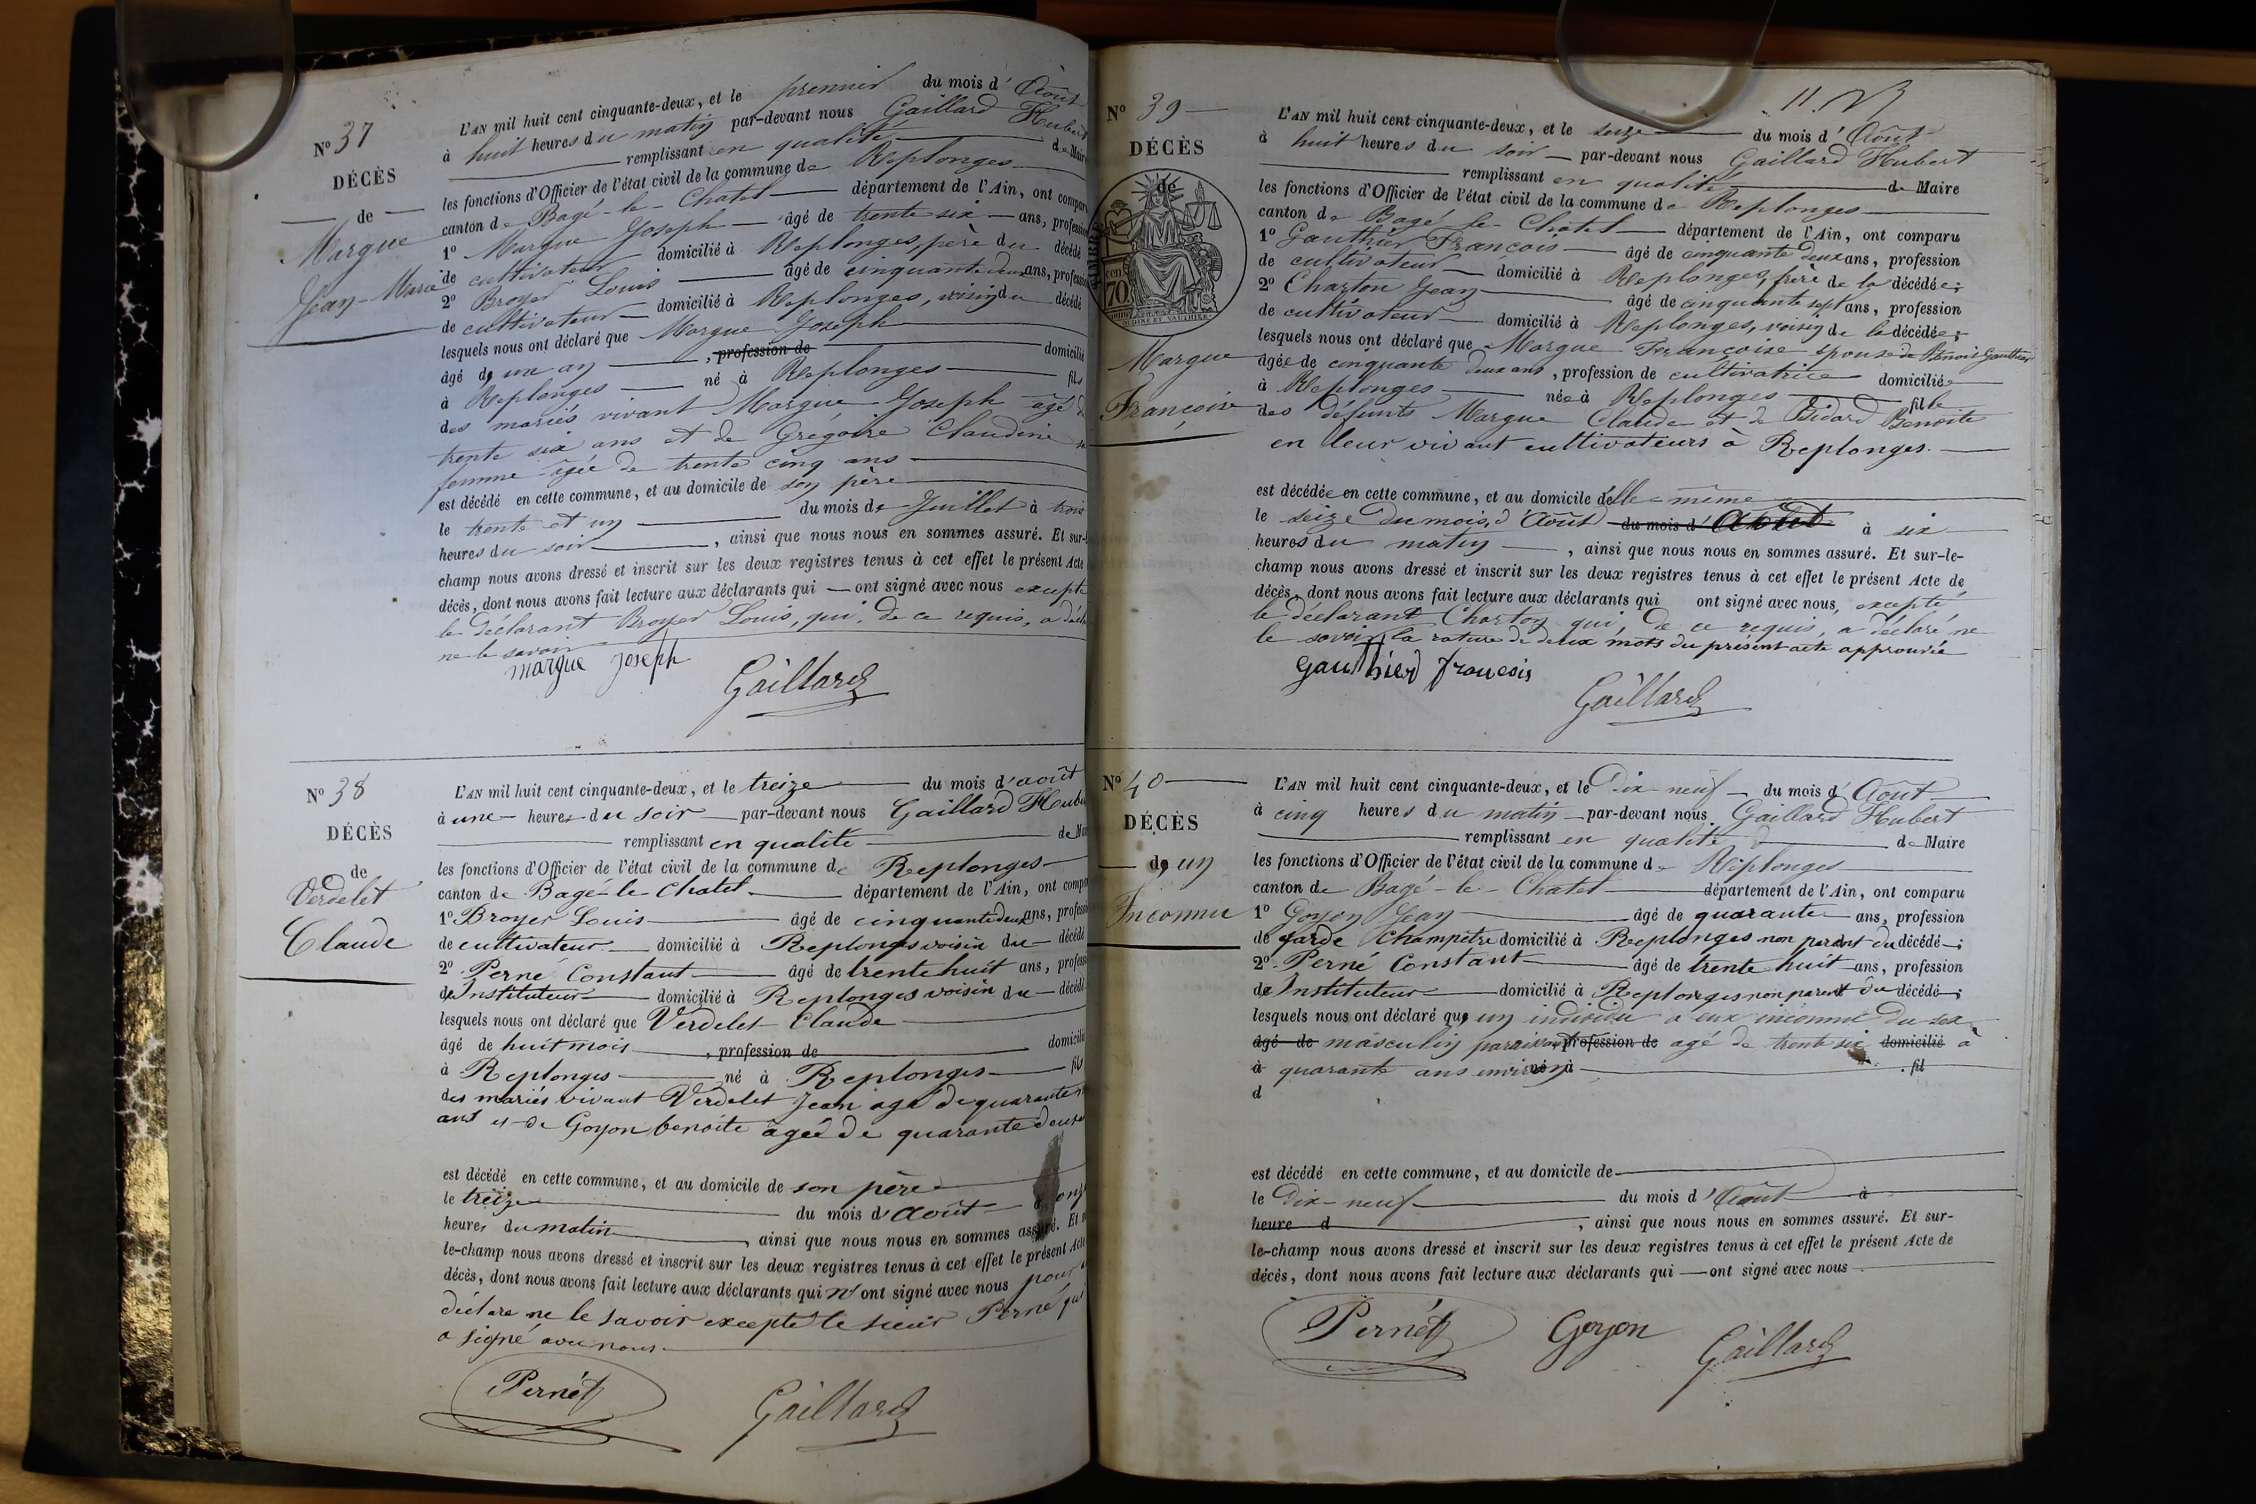 N° 37
DÉCÈS
de
Margue
Jean-Marie
L'AN mil huit cent cinquante-deux, et le premier du mois d'Août
à huit heures du matin par-devant nous Gaillard Hubert
remplissant en qualité de Maire
les fonctions d'Officier de l'état civil de la commune de Replonges
canton de Bagé-le-Chatel département de l'Ain, ont comparu
1° Margue Joseph âgé de trente six ans, profession
de cultivateur domicilié à Replonges, père du décédé
2° Broyer Louis âgé de cinquante deux ans, profession
de cultivateur domicilié à Replonges, voisin du décédé
lesquels nous ont déclaré que Margue Joseph
âgé de un an, profession de domicilié
à Replonges né à Replonges fils
des mariés vivant Margue Joseph âgé de
trente six ans et de Gregoire Claudine sa
femme âgée de trente cinq ans
est décédé en cette commune, et au domicile de son père
le trente et un du mois de Juillet à trois
heures du soir, ainsi que nous nous en sommes assuré. Et sur-le-
champ nous avons dressé et inscrit sur les deux registres tenus à cet effet le présent Acte
décès, dont nous avons fait lecture aux déclarants qui ont signé avec nous excepté
le déclarant Broyer Louis, qui, de ce requis, a déclaré
ne le savoir
margue joseph
Gaillard
N° 38
DÉCÈS
de
Verdelet
Claude
L'AN mil huit cent cinquante-deux, et le treize du mois d'août
à une heures du soir par-devant nous Gaillard Hubert
remplissant en qualité de Maire
les fonctions d'Officier de l'état civil de la commune de Replonges
canton de Bagé-le-Chatel département de l'Ain, ont comparu
1° Broyer Louis âgé de cinquante deux ans, profession
de cultivateur domicilié à Replonges voisin du décédé
2° Perné Constant âgé de trente huit ans, profession
de Instituteur domicilié à Replonges voisin du décédé
lesquels nous ont déclaré que Verdelet Claude
âgé de huit mois, profession de domicilié
à Replonges né à Replonges fils
des mariés vivant Verdelet Jean agé de quarante
ans et de Goyon benoite agée de quarante deux
est décédé en cette commune, et au domicile de son père
le treize du mois d'Août à onze
heures du matin, ainsi que nous nous en sommes assuré. Et sur-
le-champ nous avons dressé et inscrit sur les deux registres tenus à cet effet le présent Acte
décès, dont nous avons fait lecture aux déclarants qui n'ont signé avec nous pour
déclare ne le savoir excepté le sieur Perné qui
a signé avec nous.
Pernét
Gaillard
N° 39
DÉCÈS
de
cen 70
Margue
Françoise
L'AN mil huit cent cinquante-deux, et le seize du mois d'Août
à huit heures du soir par-devant nous Gaillard Hubert
remplissant en qualité de Maire
les fonctions d'Officier de l'état civil de la commune de Replonges
canton de Bagé-le-Chatel département de l'Ain, ont comparu
1° Gauthier François âgé de cinquante deux ans, profession
de cultivateur domicilié à Replonges, frère de la décédée;
2° Charton Jean âgé de cinquante sept ans, profession
de cultivateur domicilié à Replonges, voisin de la décédée;
lesquels nous ont déclaré que Margue Françoise épouse de Benoit Gauthier
âgée de cinquante deux ans, profession de cultivatrice domiciliée
à Replonges née à Replonges fille
des défunts Margue Claude et de Bidard Benoite
en leur vivant cultivateurs à Replonges.
est décédée en cette commune, et au domicile d'elle-même
le seize du mois d'Août du mois d' à six
heures du matin, ainsi que nous nous en sommes assuré. Et sur-le-
champ nous avons dressé et inscrit sur les deux registres tenus à cet effet le présent Acte de
décès, dont nous avons fait lecture aux déclarants qui ont signé avec nous, excepté,
le déclarant Charton qui, de ce requis, a déclaré ne
le savoir la rature de deux mots du présent acte approuvée
Gauthier françois
Gaillard
N° 40
DÉCÈS
de un
Inconnu
L'AN mil huit cent cinquante-deux, et le Dix neuf du mois d'Août
à cinq heures du matin par-devant nous Gaillard Hubert
remplissant en qualité de Maire
les fonctions d'Officier de l'état civil de la commune de Replonges
canton de Bagé-le-Chatel département de l'Ain, ont comparu
1° Goyon Jean âgé de quarante ans, profession
de garde Champêtre domicilié à Replonges non parent du décédé;
2° Perné Constant âgé de trente huit ans, profession
de Instituteur domicilié à Replonges non parent du décédé;
lesquels nous ont déclaré que un individu à eux inconnu du sexe
âgé de masculin paraissant profession de agé de trente six domicilié à
à quarante ans environ né à fil
d
est décédé en cette commune, et au domicile de
le Dix-neuf du mois d'Août à
heure d, ainsi que nous nous en sommes assuré. Et sur-
le-champ nous avons dressé et inscrit sur les deux registres tenus à cet effet le présent Acte de
décès, dont nous avons fait lecture aux déclarants qui ont signé avec nous
Pernét Goyon Gaillard